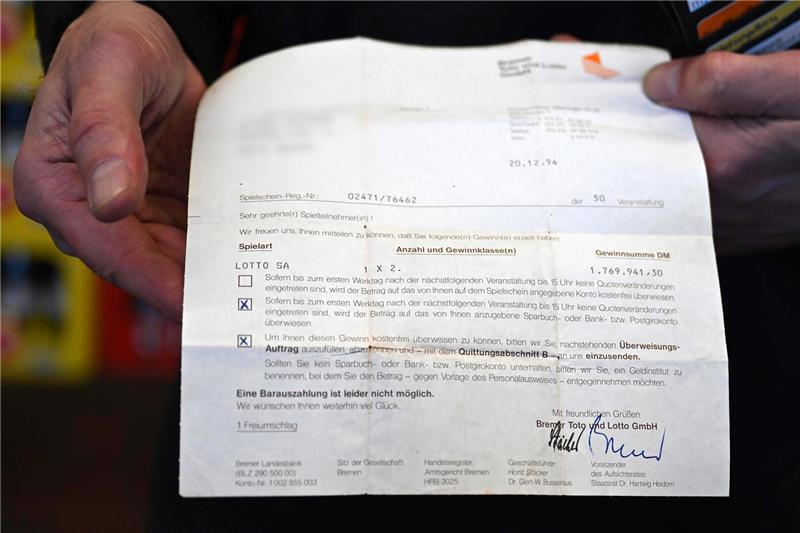 Bremer
Toto und Lotto
GmbH
20.12.94
Spielschein-Reg.-Nr.: 02471/76462 der 50 Veranstaltung
Sehr geehrte(r) Spielteilnehmer(in) !
Wir freuen uns, Ihnen mitteilen zu können, daß Sie folgende(n) Gewinn(e) erzielt haben:
Spielart Anzahl und Gewinnklasse(n) Gewinnsumme DM
LOTTO SA 1 X 2. 1.769.941,30
Sofern bis zum ersten Werktag nach der nächstfolgenden Veranstaltung bis 15 Uhr keine Quotenveränderungen
eingetreten sind, wird der Betrag auf das von Ihnen auf dem Spielschein angegebene Konto kostenfrei überwiesen.
X Sofern bis zum ersten Werktag nach der nächstfolgenden Veranstaltung bis 15 Uhr keine Quotenveränderungen
eingetreten sind, wird der Betrag auf das von Ihnen anzugebene Sparbuch- oder Bank- bzw. Postgirokonto
überwiesen.
X Um Ihnen diesen Gewinn kostenfrei überweisen zu können, bitten wir Sie, nachstehenden Überweisungs-
Auftrag auszufüllen, abzutrennen und – mit dem Quittungsabschnitt B – an uns einzusenden.
Sollten Sie kein Sparbuch- oder Bank- bzw. Postgirokonto unterhalten, bitten wir Sie, ein Geldinstitut zu
benennen, bei dem Sie den Betrag – gegen Vorlage des Personalausweises – entgegennehmen möchten.
Eine Barauszahlung ist leider nicht möglich.
Wir wünschen Ihnen weiterhin viel Glück.
1 Freiumschlag
Mit freundlichen Grüßen
Bremer Toto und Lotto GmbH
Bremer Landesbank
(BLZ 290 500 00)
Konto-Nr. 1 002 855 003
Sitz der Gesellschaft:
Bremen
Handelsregister:
Amtsgericht Bremen
HRB 3025
Geschäftsführer:
Horst Stäcker
Dr. Gert-W. Bussenius
Vorsitzender
des Aufsichtsrates:
Staatsrat Dr. Hartwig Heidorn